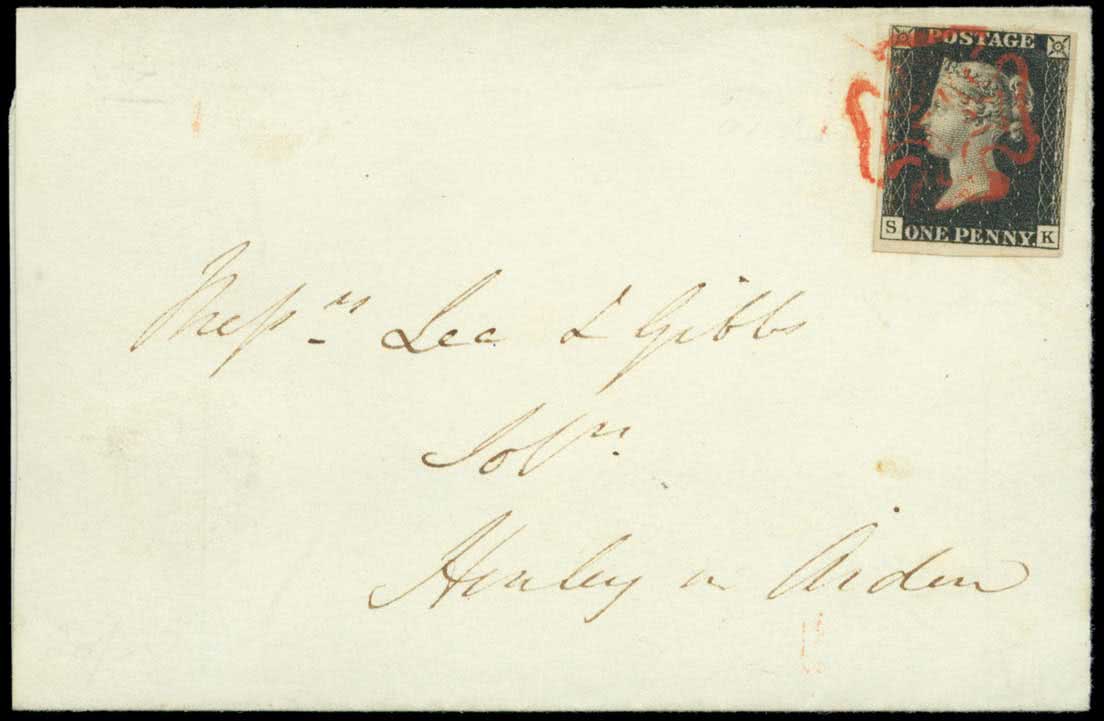 POSTAGE
S ONE PENNY. K
Messrs. Lee & Gibbs
Solrs.
Henley in Arden